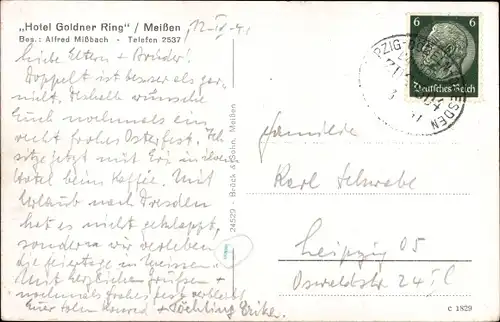 „Hotel Goldner Ring" / Meißen
Bes.: Alfred Mißbach - Telefon 2537
12-IV-41
Liebe Eltern + Brüder!
Doppelt ist besser als gar-
nicht. Deshalb wünsche
Euch nochmals ein
recht frohes Osterfest. Ich
sitze jetzt mit Eri in
Hotel beim Kaffee. Mit
Urlaub nach Dresden
hat es nicht geklappt,
sondern wir verleben
die Feiertage in Meissen.
Mit herzlichen Grüßen +
nochmals frohes Fest verbleibt
Euer Sohn + Töchting Erika.
24529 - Brück & Sohn, Meißen
6 6
Deutsches Reich
DRESDEN
Familie
Karl Schwabe
Leipzig O5
Oswaldstr. 24
C 1829